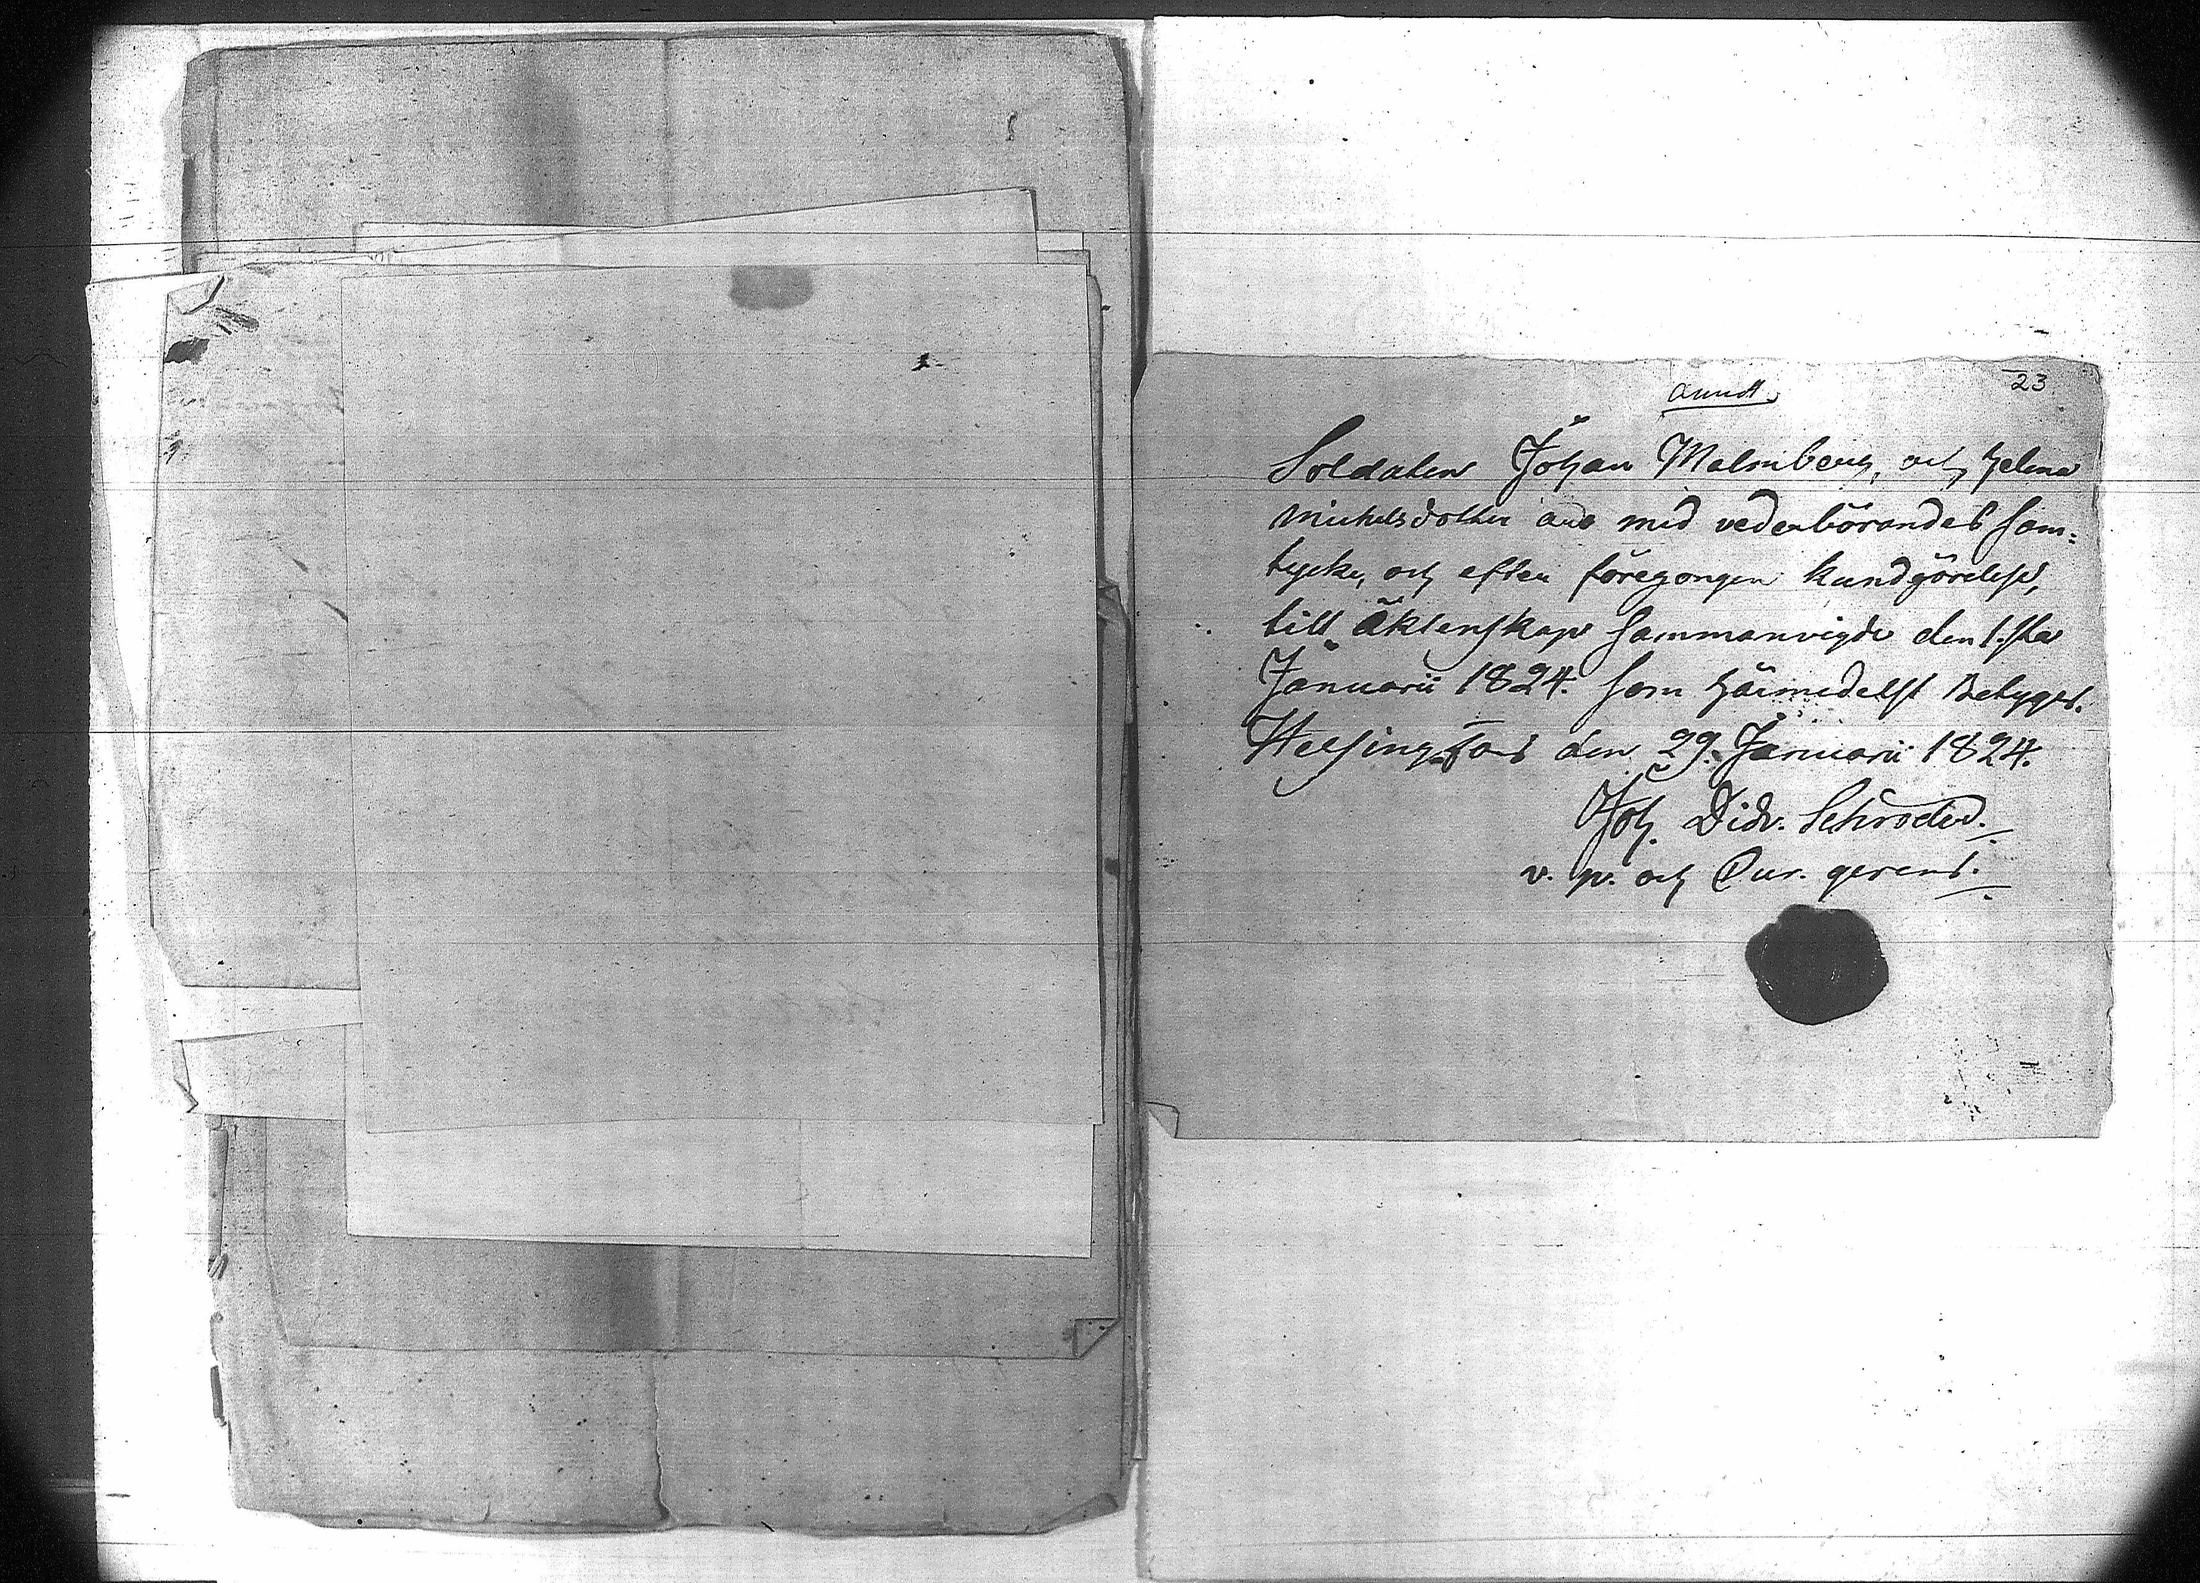 anndt.
23.
Soldaten Johan Malmberg, och Helena
Michelsdotter äro med vederbörandes sam=
tycke, och efter föregongen kundgörelse,
till Äktenskap sammanvigde den 1.sta
Januarii 1824. som härmedelst betygas.
Helsingfors den 29. Januarii 1824.
Joh. Didr. Schröder.
v. p. och Cur. gerens.